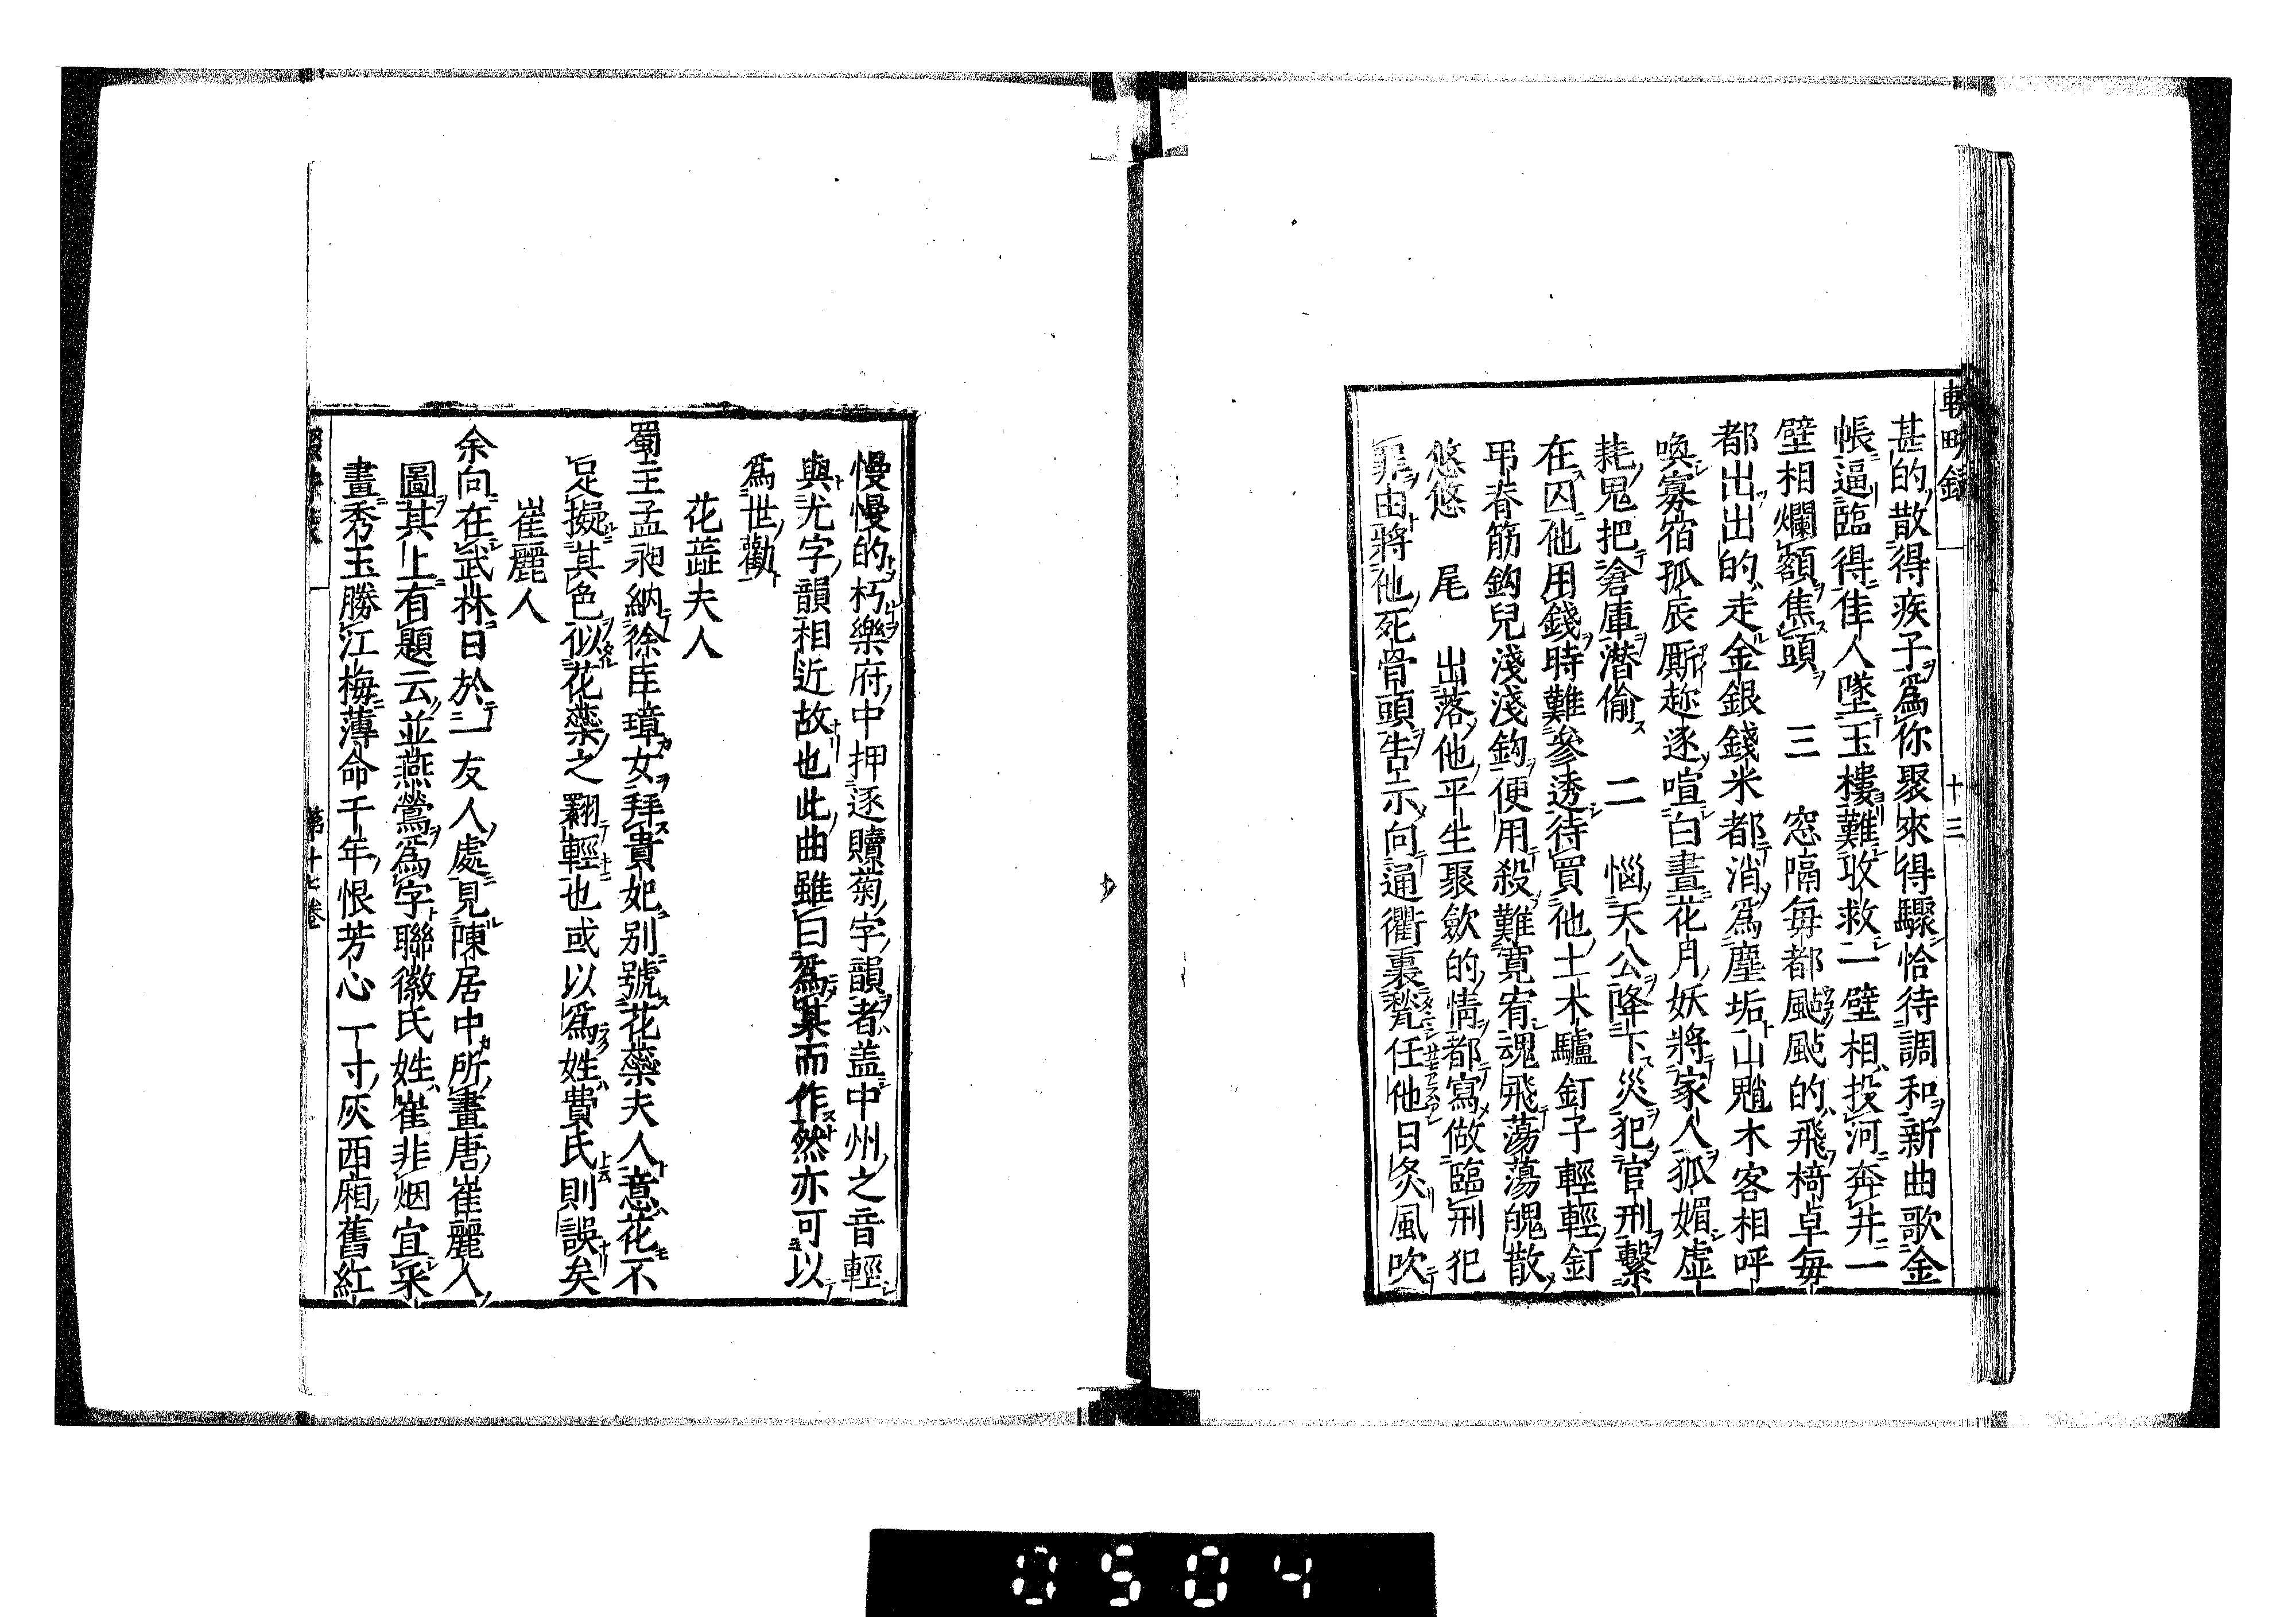 輟畊錄 十三
甚的散得疾子爲你聚來得驟恰待調和新曲歌金
帳逼臨得佳人墜玉樓難收救二壁相投河奔井一
壁相爛額焦頭 三 窓隔每都颩颩的飛椅卓每
都出出的走金銀錢米都消爲塵垢山魈木客相呼
喚寡宿孤辰厮趂逐喧白晝花月妖將家人狐媚虛
耗鬼把滄庫潜偷 二 惱天公降下災犯官刑繫
在囚他用錢時難參透待買他上木驢釘子輕輕釘
弔春筋鈎兒淺淺鈎便用殺難寛宥魂飛蕩蕩魄散
悠悠 尾 出落他平生聚歛的情都寫做臨刑犯
罪由將他死骨頭告示向通衢裏甃任他日炙風吹
慢慢的朽樂府中押逐贖菊字韻者盖中州之音輕
與尤字韻相近故也此曲雖曰爲某而作然亦可以
爲世勸
花蘂夫人
蜀主孟昶納徐匡璋女拜貴妃别號花蘂夫人意花不
足擬其色似花蘂之翾輕也或以爲姓費氏則誤矣
崔麗人
余向在武林日於一友人處見陳居中所畫唐崔麗人
圖其上有題云並燕鶯爲字聯徽氏姓崔非烟宜采
畫秀玉勝江梅薄命千年恨芳心一寸灰西廂舊紅
第十七卷
0504